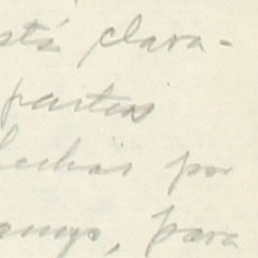 stá clara-
partes
hechas por
amp, para